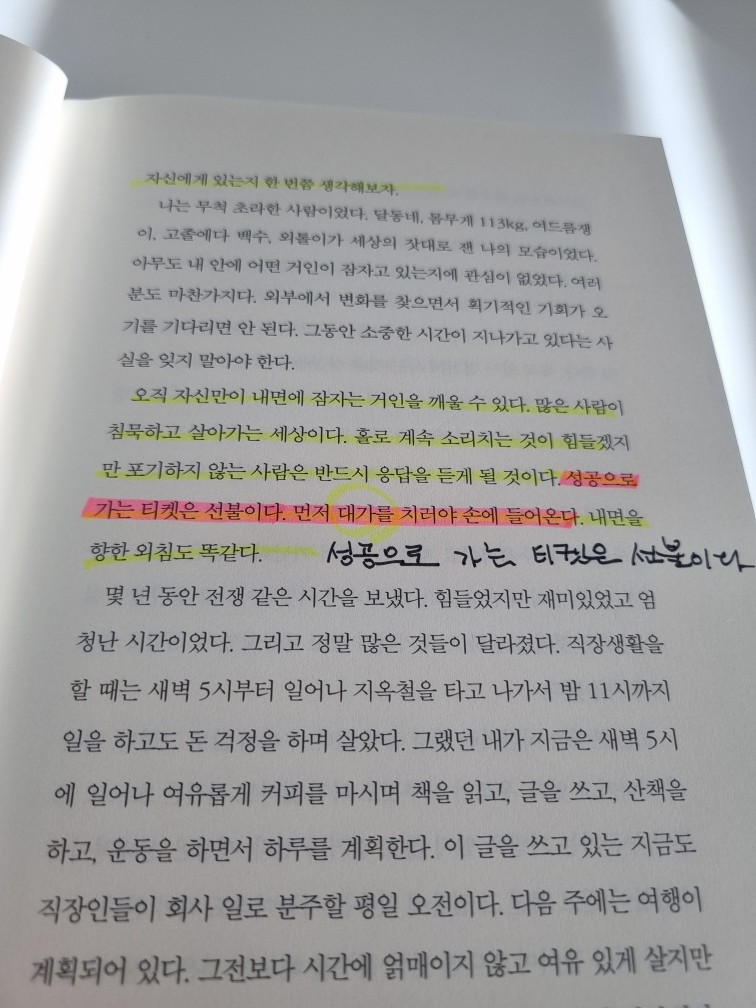 자신에게 있는지 한 번쯤 생각해보자.
나는 무척 초라한 사람이었다. 달동네, 몸무게 113kg, 여드름쟁
이, 고졸에다 백수, 외톨이가 세상의 잣대로 잰 나의 모습이었다.
아무도 내 안에 어떤 거인이 잠자고 있는지에 관심이 없었다. 여러
분도 마찬가지다. 외부에서 변화를 찾으면서 획기적인 기회가 오
기를 기다리면 안 된다. 그동안 소중한 시간이 지나가고 있다는 사
실을 잊지 말아야 한다.
오직 자신만이 내면에 잠자는 거인을 깨울 수 있다. 많은 사람이
침묵하고 살아가는 세상이다. 홀로 계속 소리치는 것이 힘들겠지
만 포기하지 않는 사람은 반드시 응답을 듣게 될 것이다. 성공으로
가는 티켓은 선불이다. 먼저 대가를 치러야 손에 들어온다. 내면을
향한 외침도 똑같다. 성공으로 가는 티켓은 선불이다
몇 년 동안 전쟁 같은 시간을 보냈다. 힘들었지만 재미있었고 엄
청난 시간이었다. 그리고 정말 많은 것들이 달라졌다. 직장생활을
할 때는 새벽 5시부터 일어나 지옥철을 타고 나가서 밤 11시까지
일을 하고도 돈 걱정을 하며 살았다. 그랬던 내가 지금은 새벽 5시
에 일어나 여유롭게 커피를 마시며 책을 읽고, 글을 쓰고, 산책을
하고, 운동을 하면서 하루를 계획한다. 이 글을 쓰고 있는 지금도
직장인들이 회사 일로 분주할 평일 오전이다. 다음 주에는 여행이
계획되어 있다. 그전보다 시간에 얽매이지 않고 여유 있게 살지만